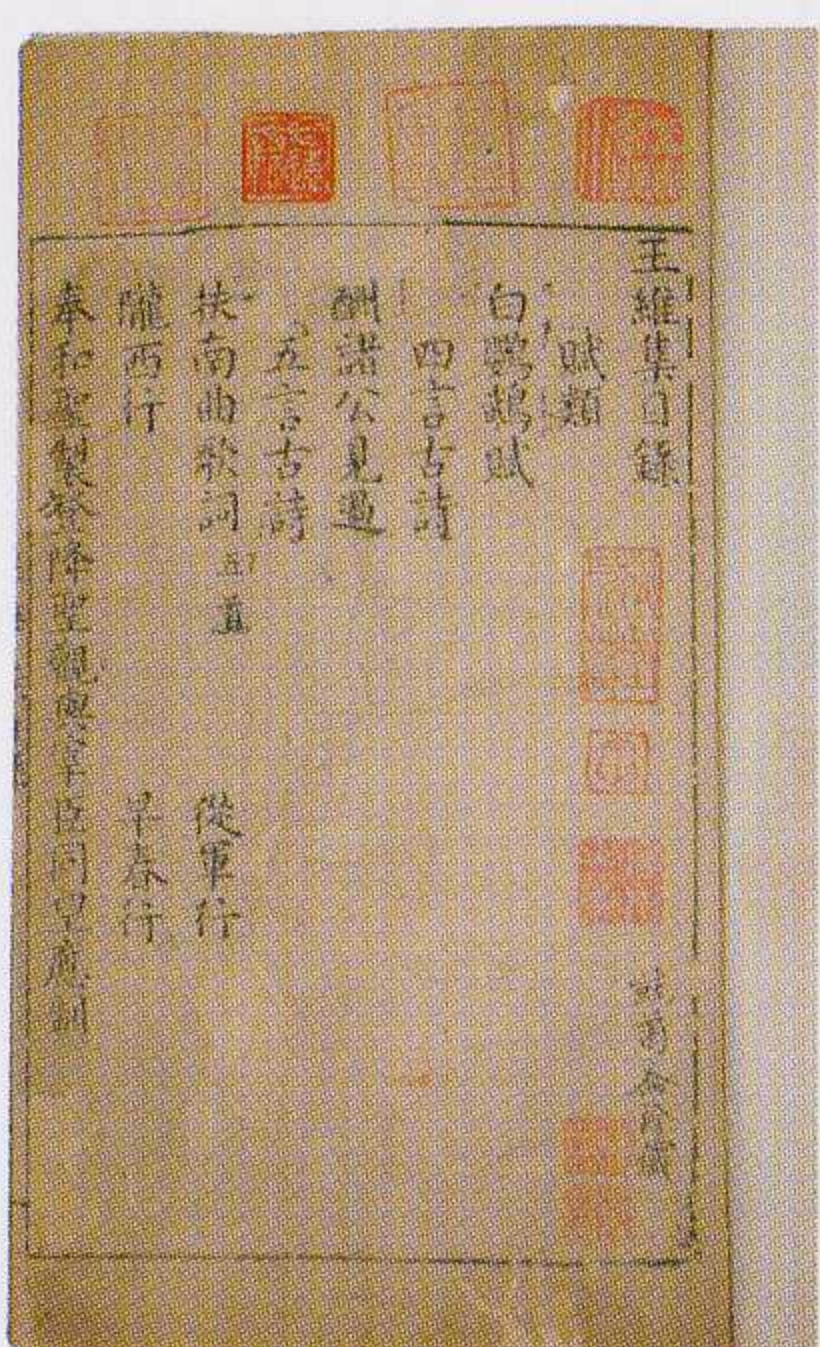 王維集目錄
賦類
白鸚鵡賦
四言古詩
酬諸公見過
五言古詩
扶南曲歌詞 五首 從軍行
隴西行 早春行
奉和聖製登降聖觀與宰臣同望應制